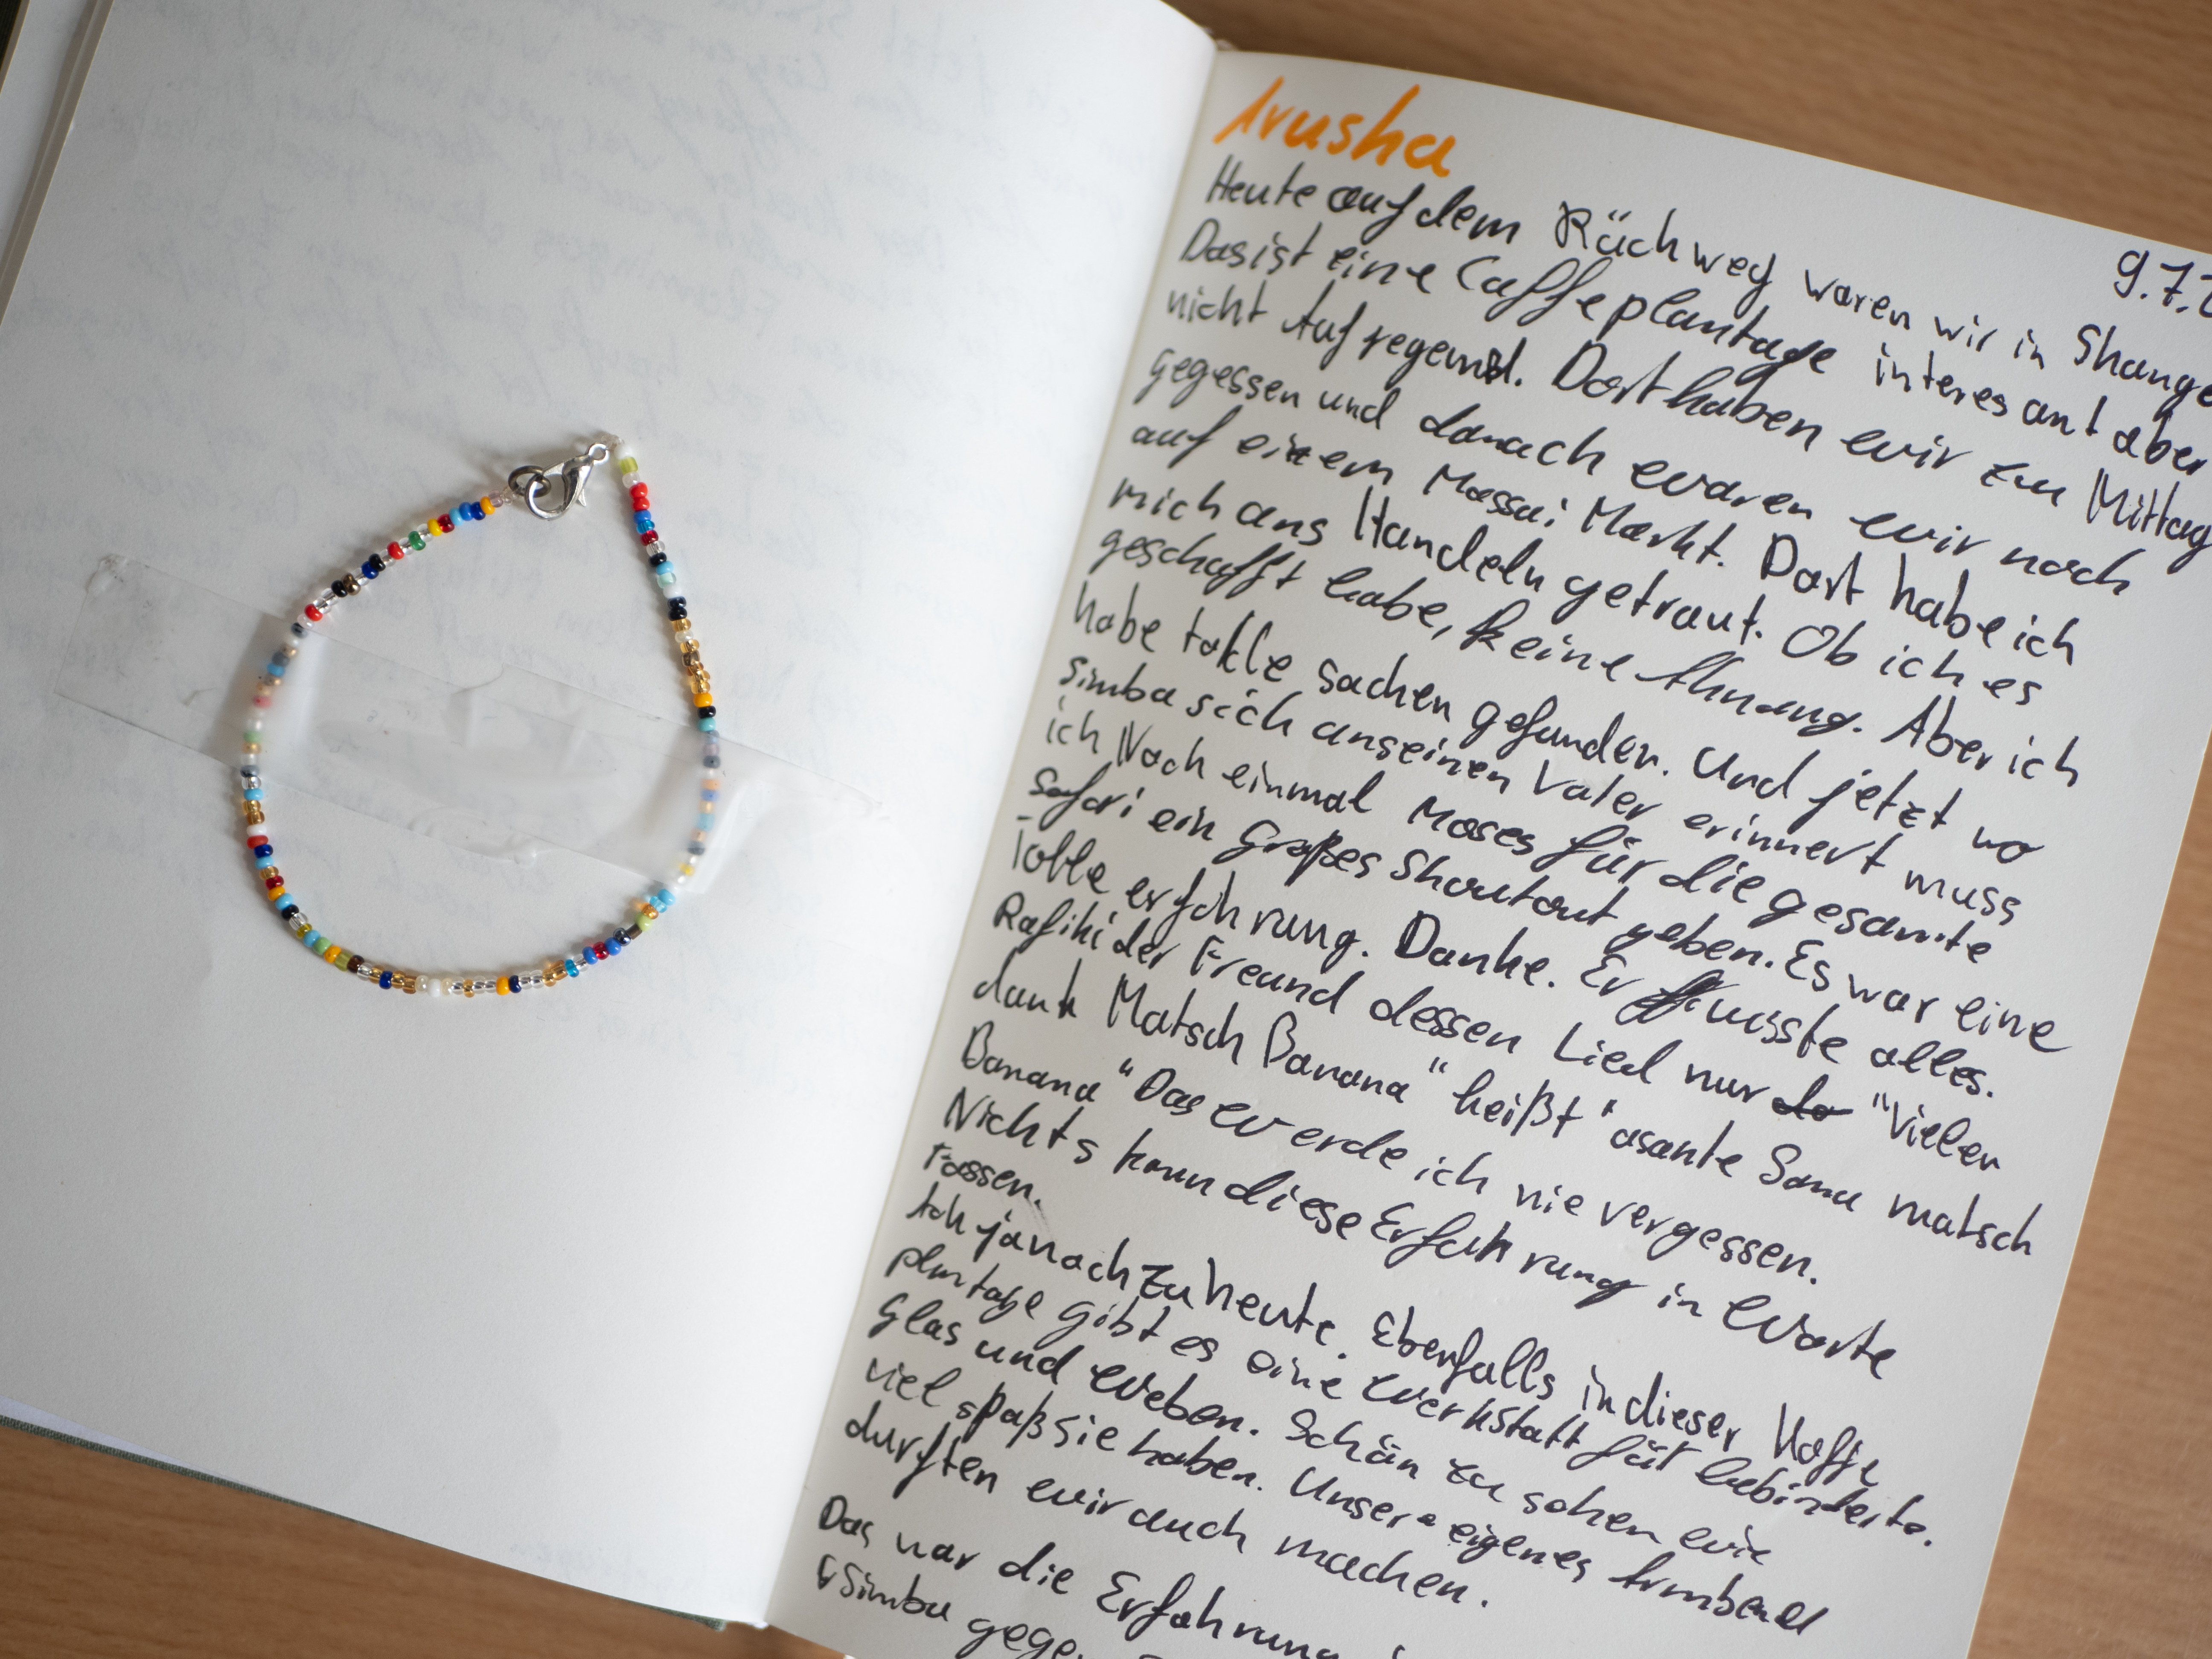 Arusha
9.7.
Heute auf dem Rückweg waren wir in Shange
Das ist eine Caffeplantage interesant aber
nicht Aufregend. Dort haben wir zu Mittag
gegessen und danach waren wir noch
auf einem Massai Markt. Dort habe ich
mich ans Handeln getraut. Ob ich es
geschafft habe, keine Ahnung. Aber ich
habe tolle sachen gefunden. Und jetzt wo
Simba sich an seinen Vater erinnert muss
ich Noch einmal Moses für die gesamte
Safari ein großes Shoutout geben. Es war eine
Tolle erfahrung. Danke. Er wusste alles.
Rafiki der Freund dessen Lied nur "Vielen
dank Matsch Banana" heißt "asante Sana matsch
Banana" Das werde ich nie vergessen.
Nichts kann diese Erfahrung in Worte
Fassen.
Ach ja noch zu heute. Ebenfalls in dieser Kaffe
plantage gibt es eine Werkstatt für behinderte.
Glas und Weben. Schön zu sehen wie
viel spaß sie haben. Unser eigenes Armband
durften wir auch machen.
Das war die Erfahrung
Simba gege